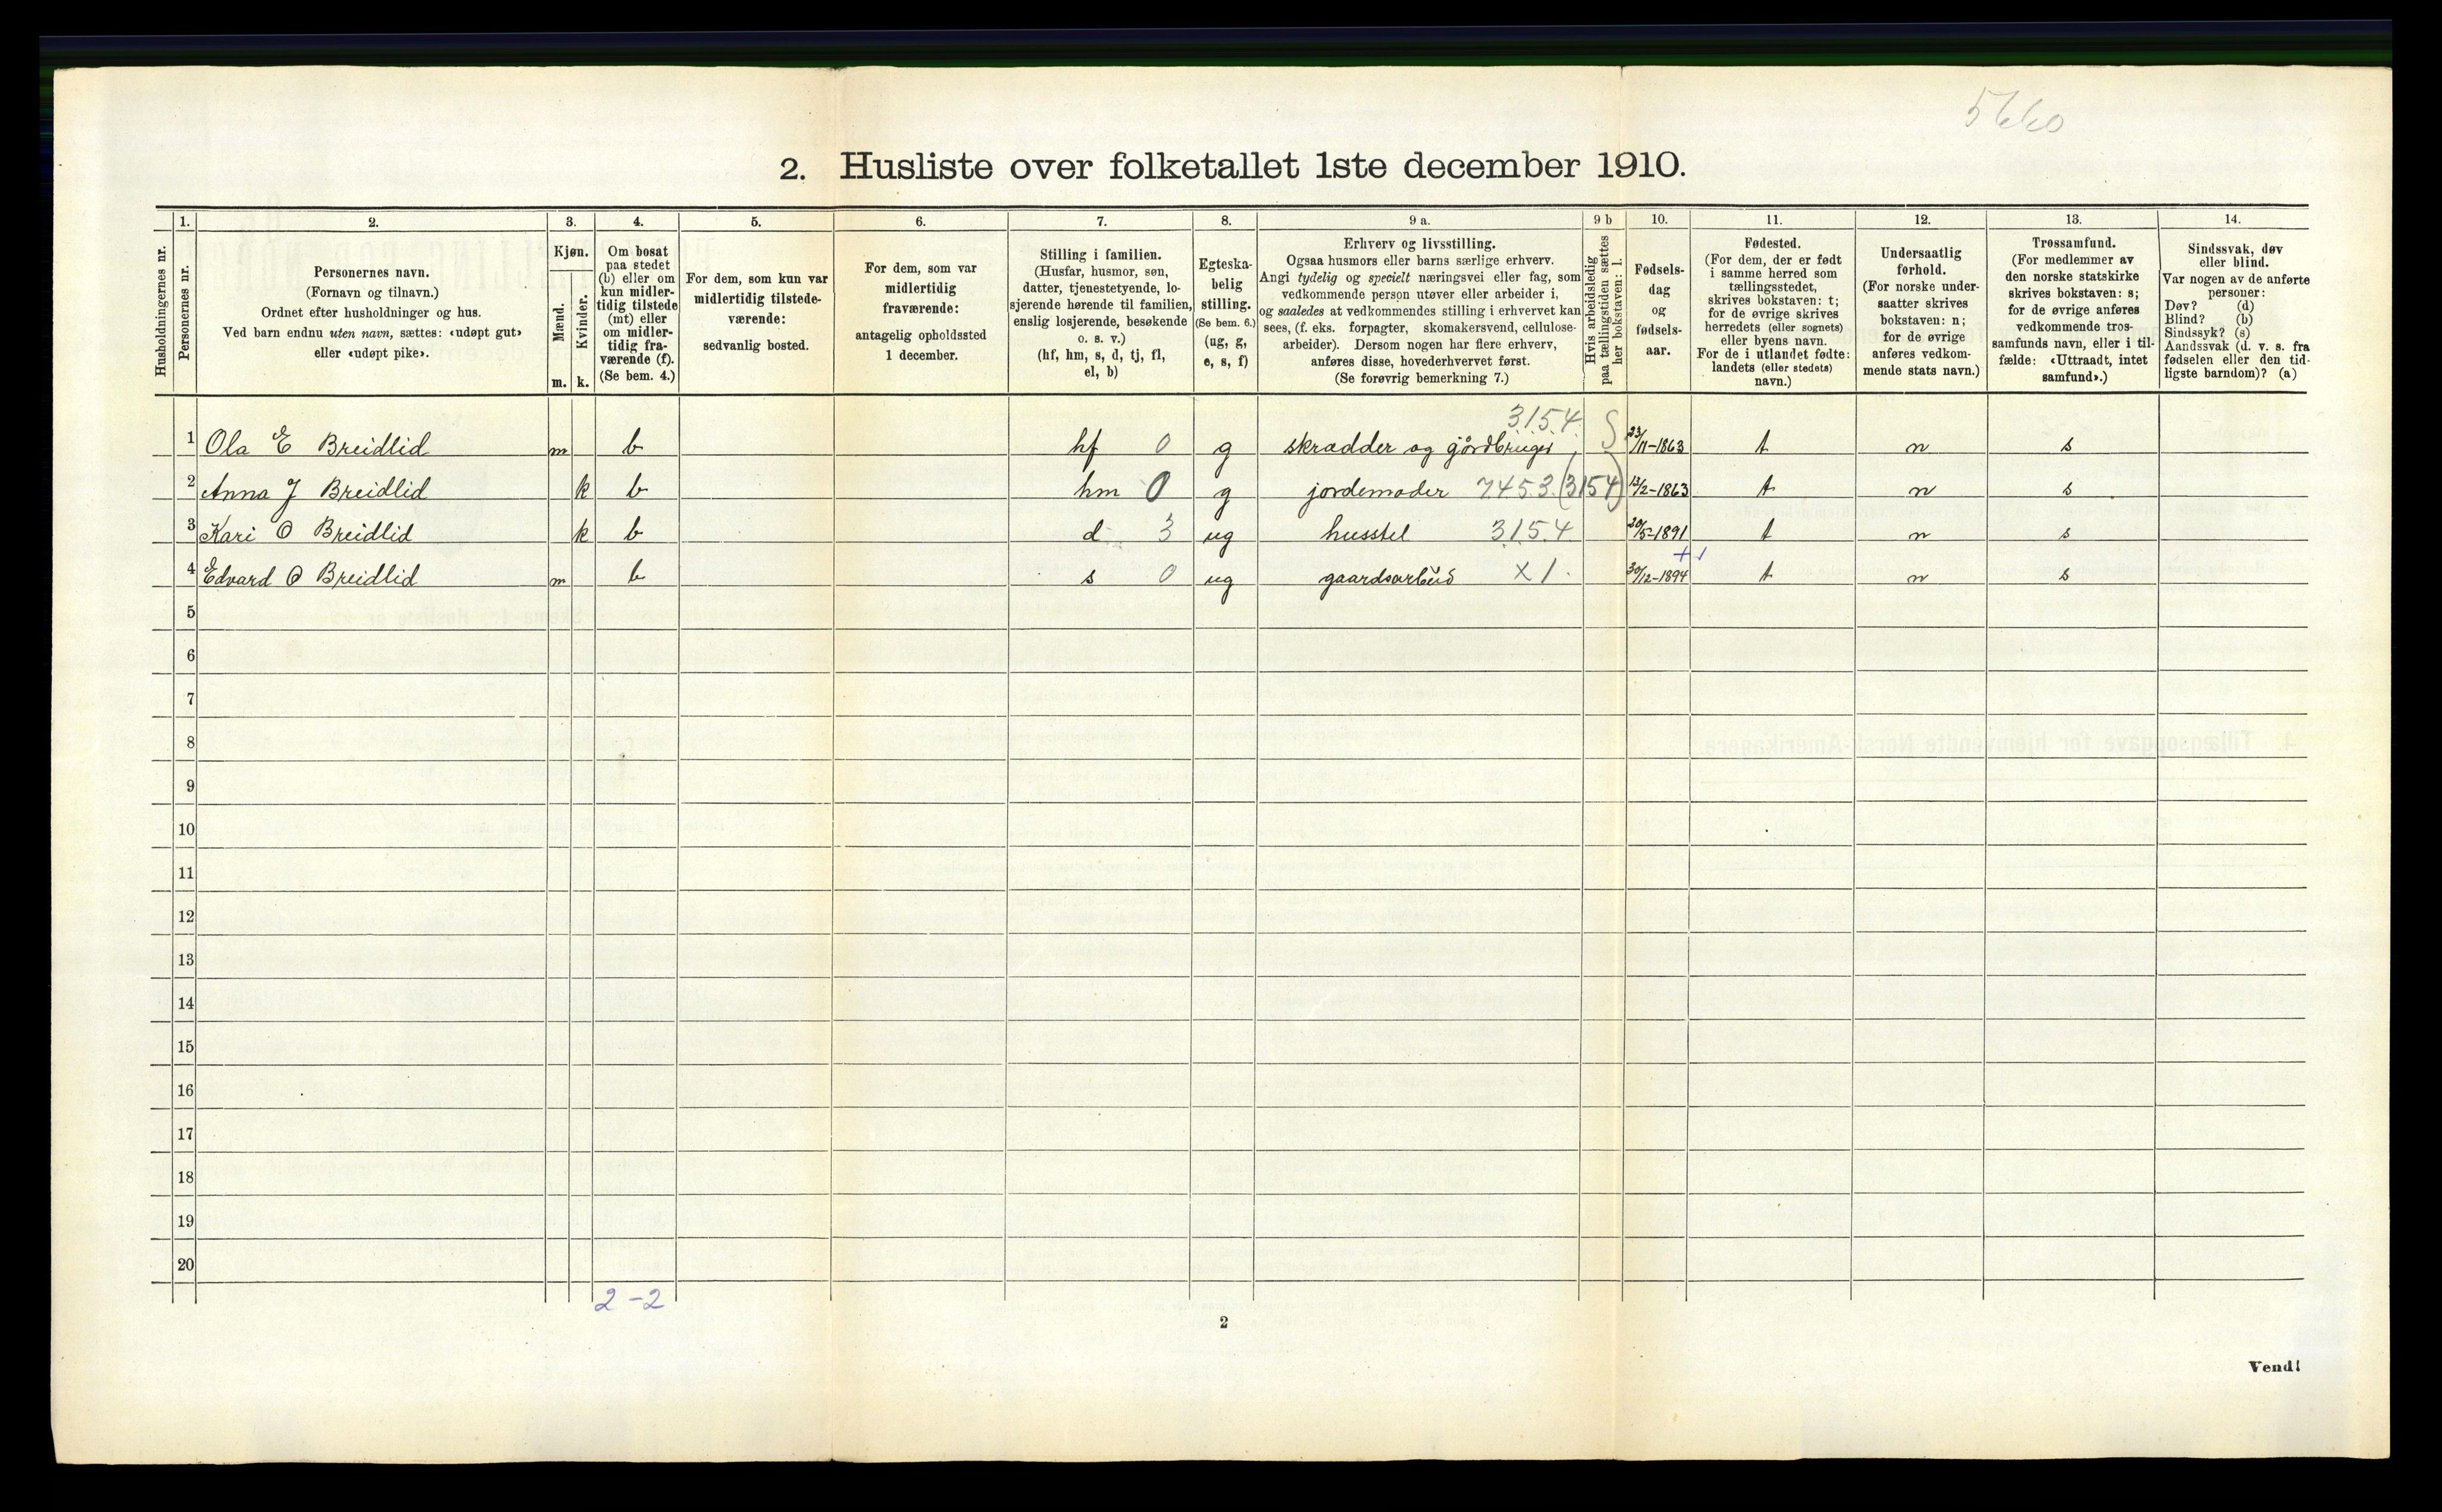 5660
2. Husliste over folketallet 1ste december 1910.
1. 2. 3. 4. 5. 6. 7. 8. 9 a. 9 b 10. 11. 12. 13. 14.
Husholdningernes nr.
Personernes nr.
Personernes navn.
(Fornavn og tilnavn.)
Ordnet efter husholdninger og hus.
Ved barn endnu uten navn, sættes: «udøpt gut»
eller «udøpt pike».
Kjøn.
Mænd.
Kvinder.
m. k.
Om bosat
paa stedet
(b) eller om
kun midler-
tidig tilstede
(mt) eller
om midler-
tidig fra-
værende (f).
(Se bem. 4.)
For dem, som kun var
midlertidig tilstede-
værende:
sedvanlig bosted.
For dem, som var
midlertidig
fraværende:
antagelig opholdssted
1 december.
Stilling i familien.
(Husfar, husmor, søn,
datter, tjenestetyende, lo-
sjerende hørende til familien,
enslig losjerende, besøkende
o. s. v.)
(hf, hm, s, d, tj, fl,
el, b)
Egteska-
belig
stilling.
(Se bem. 6.)
(ug, g,
e, s, f)
Erhverv og livsstilling.
Ogsaa husmors eller barns særlige erhverv.
Angi tydelig og specielt næringsvei eller fag, som
vedkommende person utøver eller arbeider i,
og saaledes at vedkommendes stilling i erhvervet kan
sees, (f. eks. forpagter, skomakersvend, cellulose-
arbeider). Dersom nogen har flere erhverv,
anføres disse, hovederhvervet først.
(Se forøvrig bemerkning 7.)
Hvis arbeidsledig
paa tællingstiden sættes
her bokstaven: l.
Fødsels-
dag
og
fødsels-
aar.
Fødested.
(For dem, der er født
i samme herred som
tællingsstedet,
skrives bokstaven: t;
for de øvrige skrives
herredets (eller sognets)
eller byens navn.
For de i utlandet fødte:
landets (eller stedets)
navn.)
Undersaatlig
forhold.
(For norske under-
saatter skrives
bokstaven: n;
for de øvrige
anføres vedkom-
mende stats navn.)
Trossamfund.
(For medlemmer av
den norske statskirke
skrives bokstaven: s;
for de øvrige anføres
vedkommende tros-
samfunds navn, eller i til-
fælde: «Uttraadt, intet
samfund».)
Sindssvak, døv
eller blind.
Var nogen av de anførte
personer:
Døv? (d)
Blind? (b)
Sindssyk? (s)
Aandssvak (d. v. s. fra
fødselen eller den tid-
ligste barndom)? (a)
3154
1 Ola E Breidlid m b hf 0 g skrædder og gårdbruger S 23/11-1863 t n s
2 Anna J Breidlid k b hm 0 g jordemoder 7453 (3154) 13/2-1863 t n s
3 Kari O Breidlid k b d 3 ug husstel 3154 20/5-1891 t n s
4 Edvard O Breidlid m b s 0 ug gaardsarbeid X1. 30/12-1894 t n s
5
6
7
8
9
10
11
12
13
14
15
16
17
18
19
20
2-2
2
Vend!